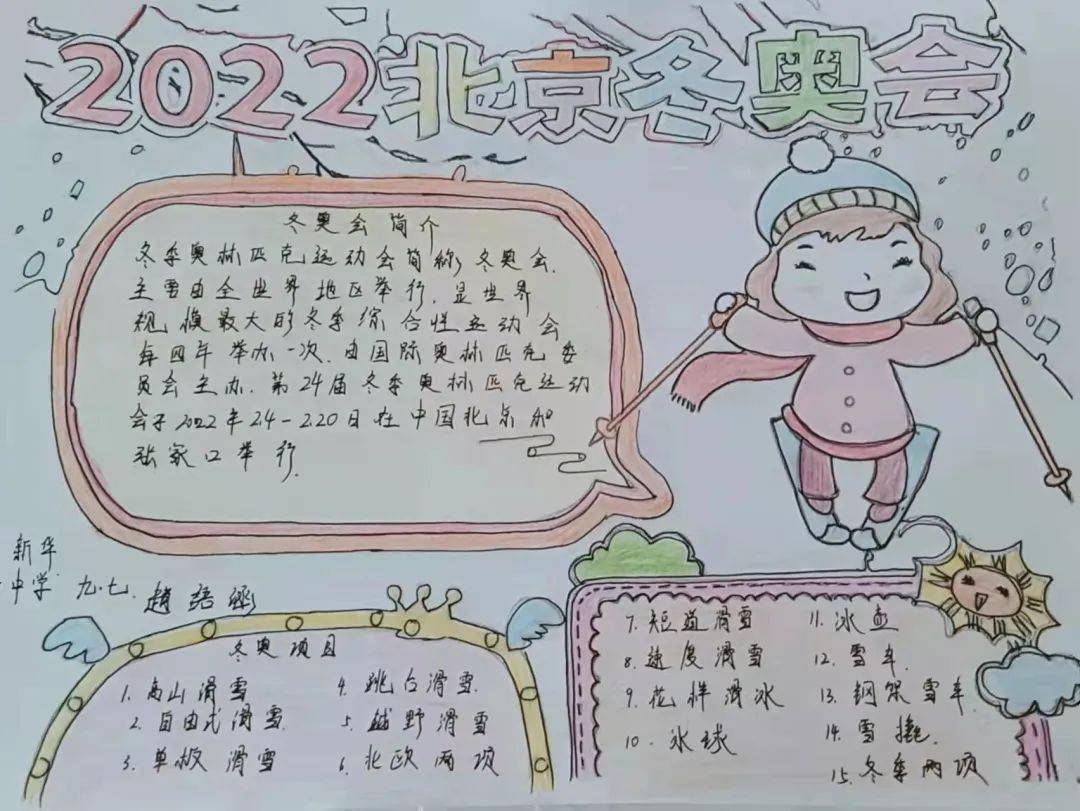 2022北京冬奥会
冬奥会简介
冬季奥林匹克运动会简称冬奥会.
主要由全世界地区举行.是世界
规模最大的冬季综合性运动会
每四年举办一次.由国际奥林匹克委
员会主办.第24届冬季奥林匹克运动
会于2022年2.4-2.20日在中国北京和
张家口举行.
新华
中学 九.七. 赵
冬奥项目
1. 高山滑雪
2. 自由式滑雪
3. 单板滑雪
4. 跳台滑雪.
5. 越野滑雪
6. 北欧两项
7. 短道滑雪
8. 速度滑雪
9. 花样滑冰
10. 冰球
11. 冰壶
12. 雪车.
13. 钢架雪车.
14. 雪橇.
15. 冬季两项